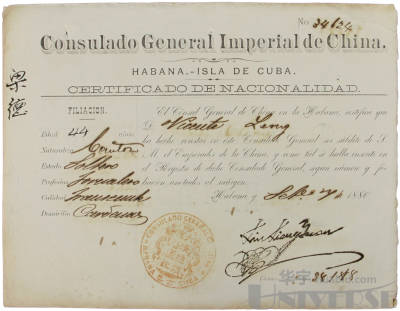 No. 34134
Consulado General Imperial de China.
HABANA.-ISLA DE CUBA.
CERTIFICADO DE NACIONALIDAD.
梁德
FILIACION.
El Consul General de China en la Habana, certifica que
Edad 44 años
D. Vicente Leng
ha hecho constar en este Consulado General ser súbdito de S.
Naturaleza Canton
M. el Emperador de la China, y como tal se halla inscrito en
Estado Soltero
el Registro de dicho Consulado General, segun número y fo-
Profesion Jornalero
lio anotados al márgen.
Calidad
Habana y 188
Domicilio Cardenas
CONSULADO GENERAL
HABANA
华宇
UNIVERSE